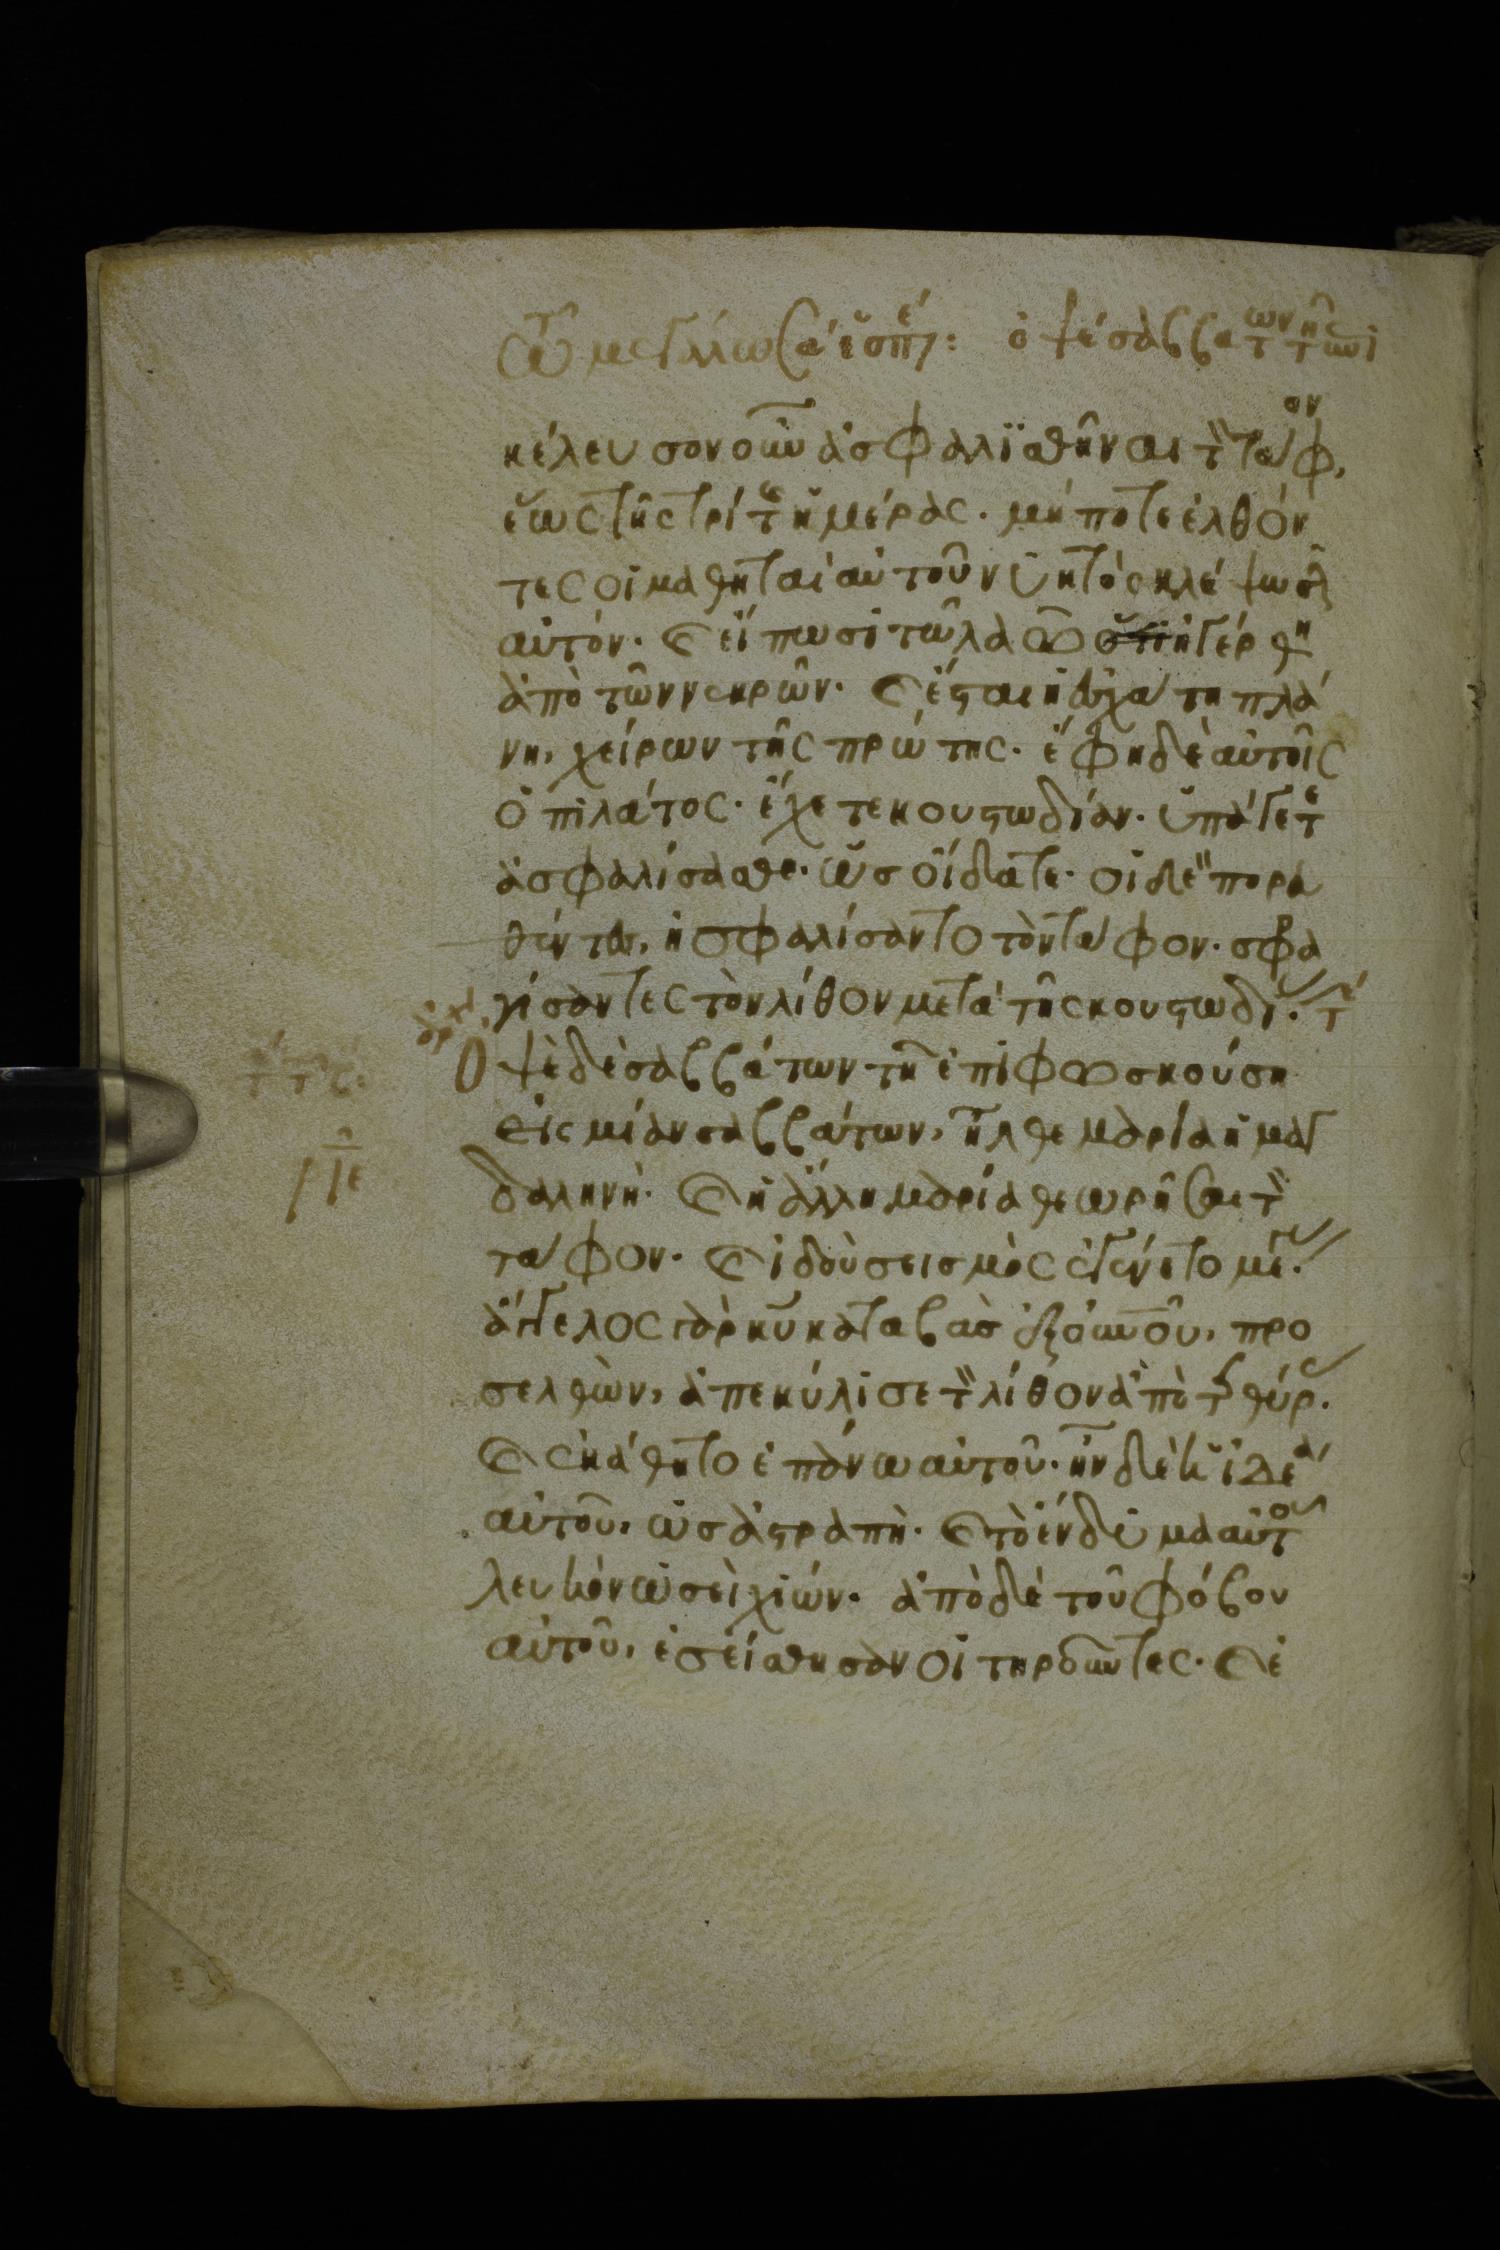 κέλευσον οὖν ἀσφαλϊσθῆναι τὸν τάφον,
ἕως τῆς τρίτης ἡμέρας. μή ποτε ἐλθόν
τες οἱ μαθηταὶ αὐτοῦ νυκτὸς κλέψωσιν
αὐτόν. καὶ εἴπωσι τῶ λαῶ ἠγέρθη
ἀπὸ τῶν νεκρῶν. καὶ ἔσται ἡ ἐσχάτη πλά
νη, χείρων τῆς πρώτης. ἔφη δὲ αὐτοῖς
ὁ πιλάτος. ἔχετε κουστωδίαν. ὑπάγετε
ἀσφαλίσασθε. ὡς οἴδατε. οἱ δὲ πορευ
θέντες, ἠσφαλίσαντο τὸν τάφον. σφρα
γίσαντες τὸν λίθον μετὰ τῆς κουστωδί. τέ
Ὀψὲ δὲ σαββάτων τῆ ἐπιφωσκούση
εἰς μίαν σαββάτων, ἦλθε μαρία ἡ μαγ
δαληνὴ. καὶ ἡ ἄλλη μαρία θεωρῆσαι τὸν
τάφον. καὶ ἰδοὺ σεισμὸς ἐγένετο μέγας.
ἄγγελος γὰρ κυ καταβὰς ἐξ οὐνοῦ, προ
σελθὼν, ἀπεκύλισε τὸν λίθον ἀπὸ τῆς θύρας.
καὶ ἐκάθητο ἐπάνω αὐτοῦ. ἦν δὲ ἡ ἰδέα
αὐτοῦ, ὡς ἀστραπὴ. καὶ τὸ ἔνδυμα αὐτοῦ
λευκὸν ὡσεὶ χιών. ἀπὸ δὲ τοῦ φόβου
αὐτοῦ, ἐσείσθησαν οἱ τηροῦντες. καὶ ἐ